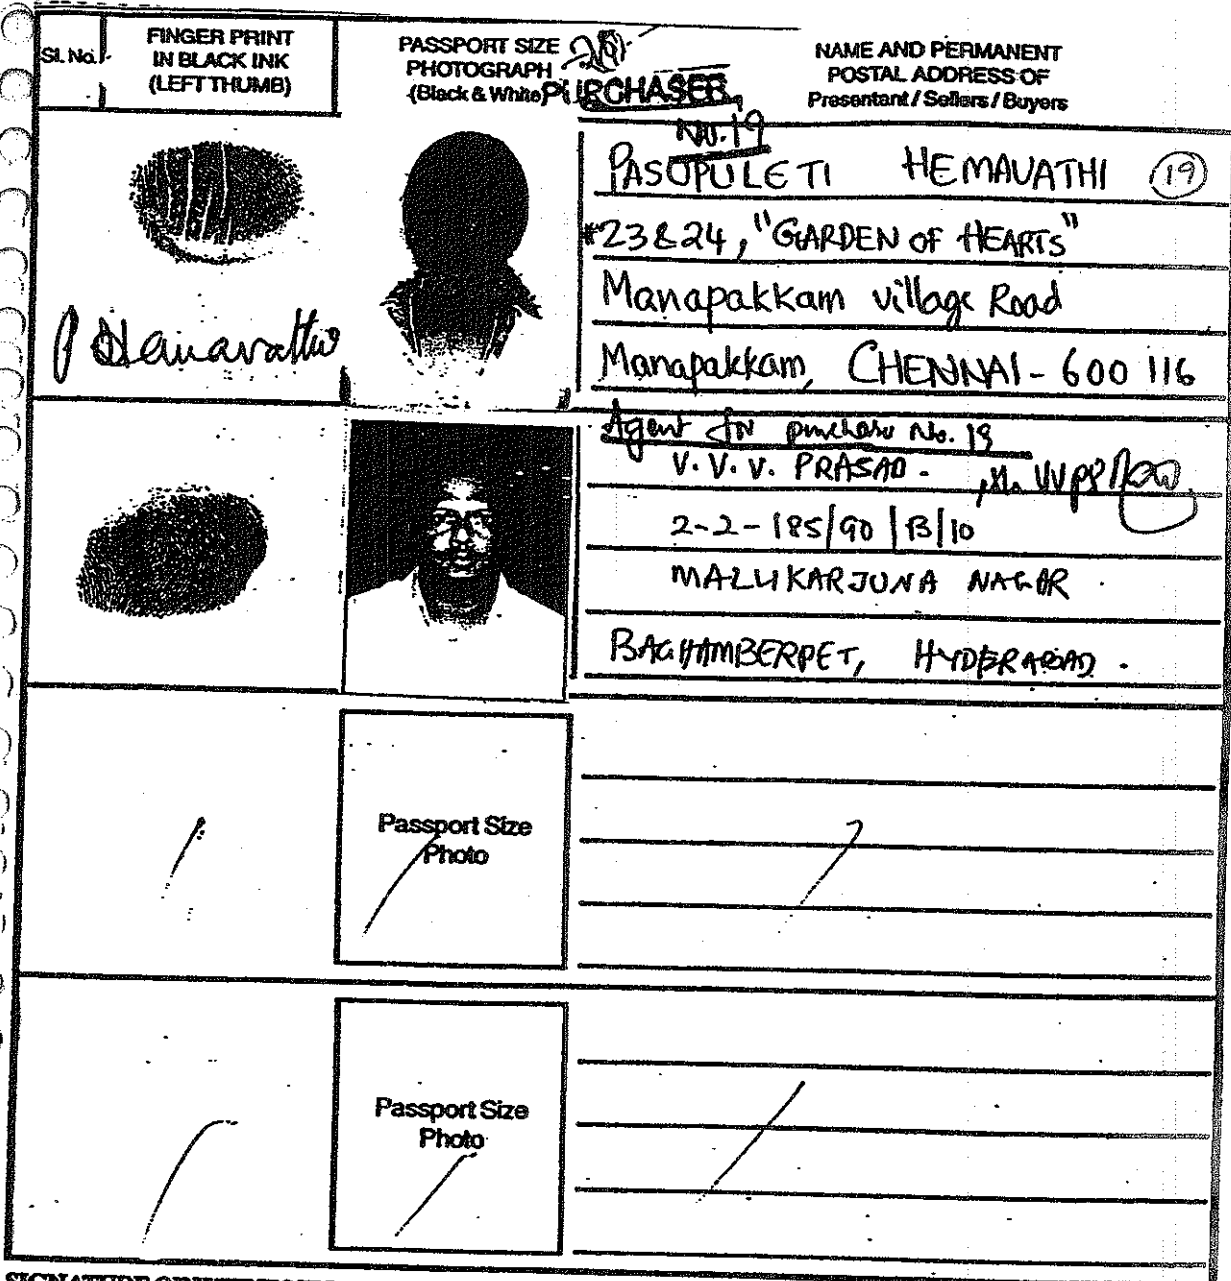 Sl. No.
FINGER PRINT
IN BLACK INK
(LEFT THUMB)
PASSPORT SIZE
PHOTOGRAPH
(Black & White)
PURCHASER
No. 19
NAME AND PERMANENT
POSTAL ADDRESS OF
Presentant / Sellers / Buyers
PASUPULETI HEMAVATHI 19
#23&24, "GARDEN OF HEARTS"
Manapakkam village Road
Manapakkam, CHENNAI - 600 116
P Hemavathi
Agent for purchaser No. 19
V. V. V. PRASAD.
2-2-185/90/B/10
MALLIKARJUNA NAGAR
BAGHAMBERPET, HYDERABAD.
Passport Size
Photo
Passport Size
Photo